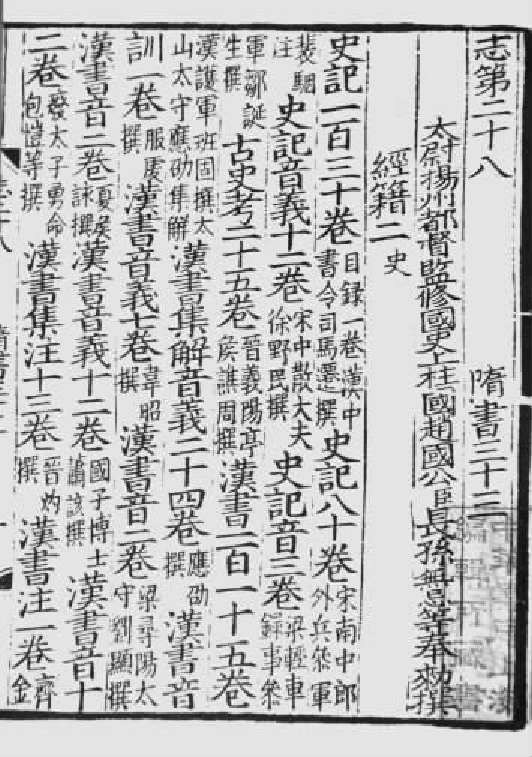 志第二十八 隋書三十三
太尉揚州都督監修國史上柱國趙國公臣長孫無忌等奉勑撰
經籍二 史
史記一百三十卷 目録一卷漢中書令司馬遷撰 史記八十卷 宋南中郎外兵叅軍
裴駰注 史記音義十二卷 宋中散大夫徐野民撰 史記音三卷 梁輕車録事叅
軍鄒誕生撰 古史考二十五卷 晉義陽亭侯譙周撰 漢書一百一十五卷
漢護軍班固撰太山太守應劭集解 漢書集解音義二十四卷 應劭撰 漢書音
訓一卷 服虔撰 漢書音義七卷 韋昭撰 漢書音二卷 梁尋陽太守劉顯撰
漢書音二卷 夏侯詠撰 漢書音義十二卷 國子博士蕭該撰 漢書音十
二卷 廢太子勇命包愷等撰 漢書集注十三卷 晉灼撰 漢書注一卷 齊金